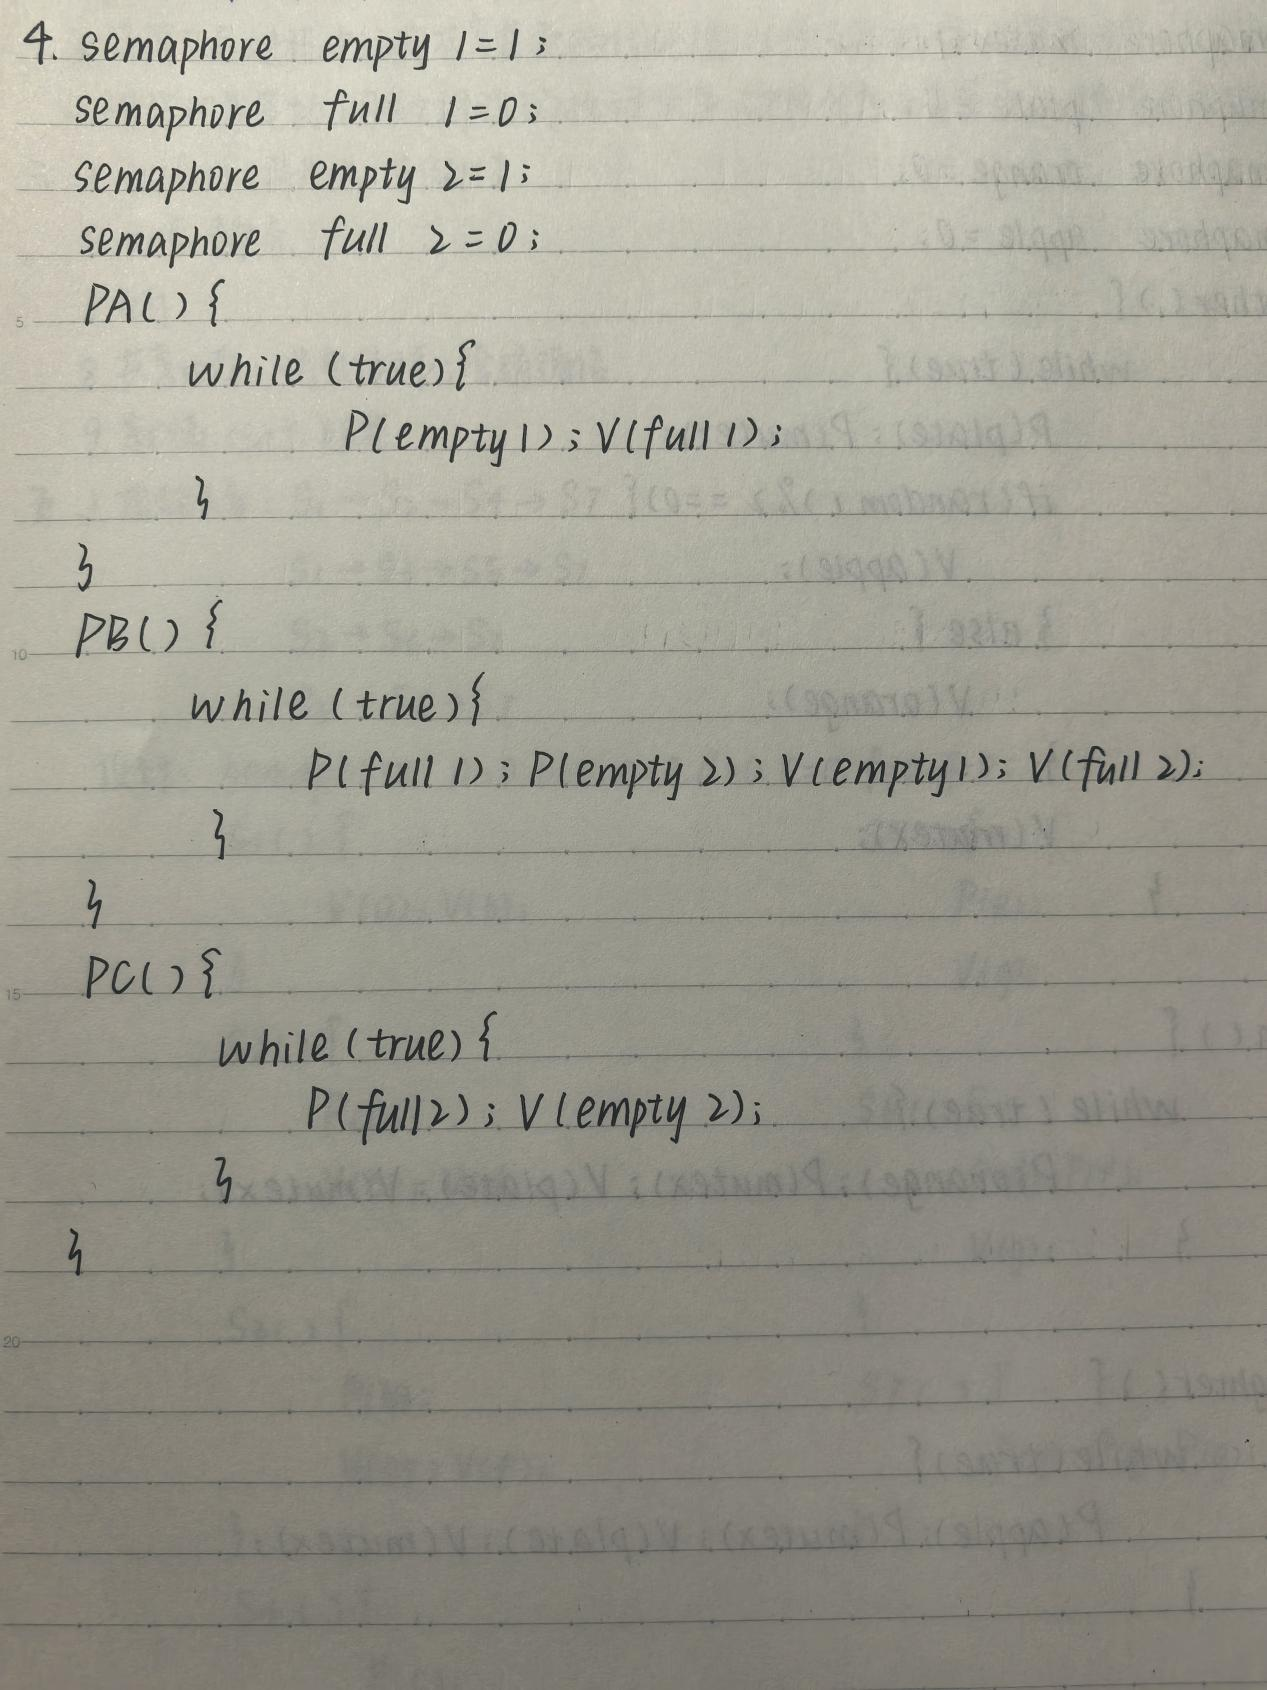 4. semaphore empty 1=1;
semaphore full 1=0;
semaphore empty 2=1;
semaphore full 2=0;
5
PA() {
while (true) {
P(empty 1); V(full 1);
}
}
10
PB() {
while (true) {
P(full 1); P(empty 2); V(empty 1); V(full 2);
}
}
15
PC() {
while (true) {
P(full 2); V(empty 2);
}
}
20